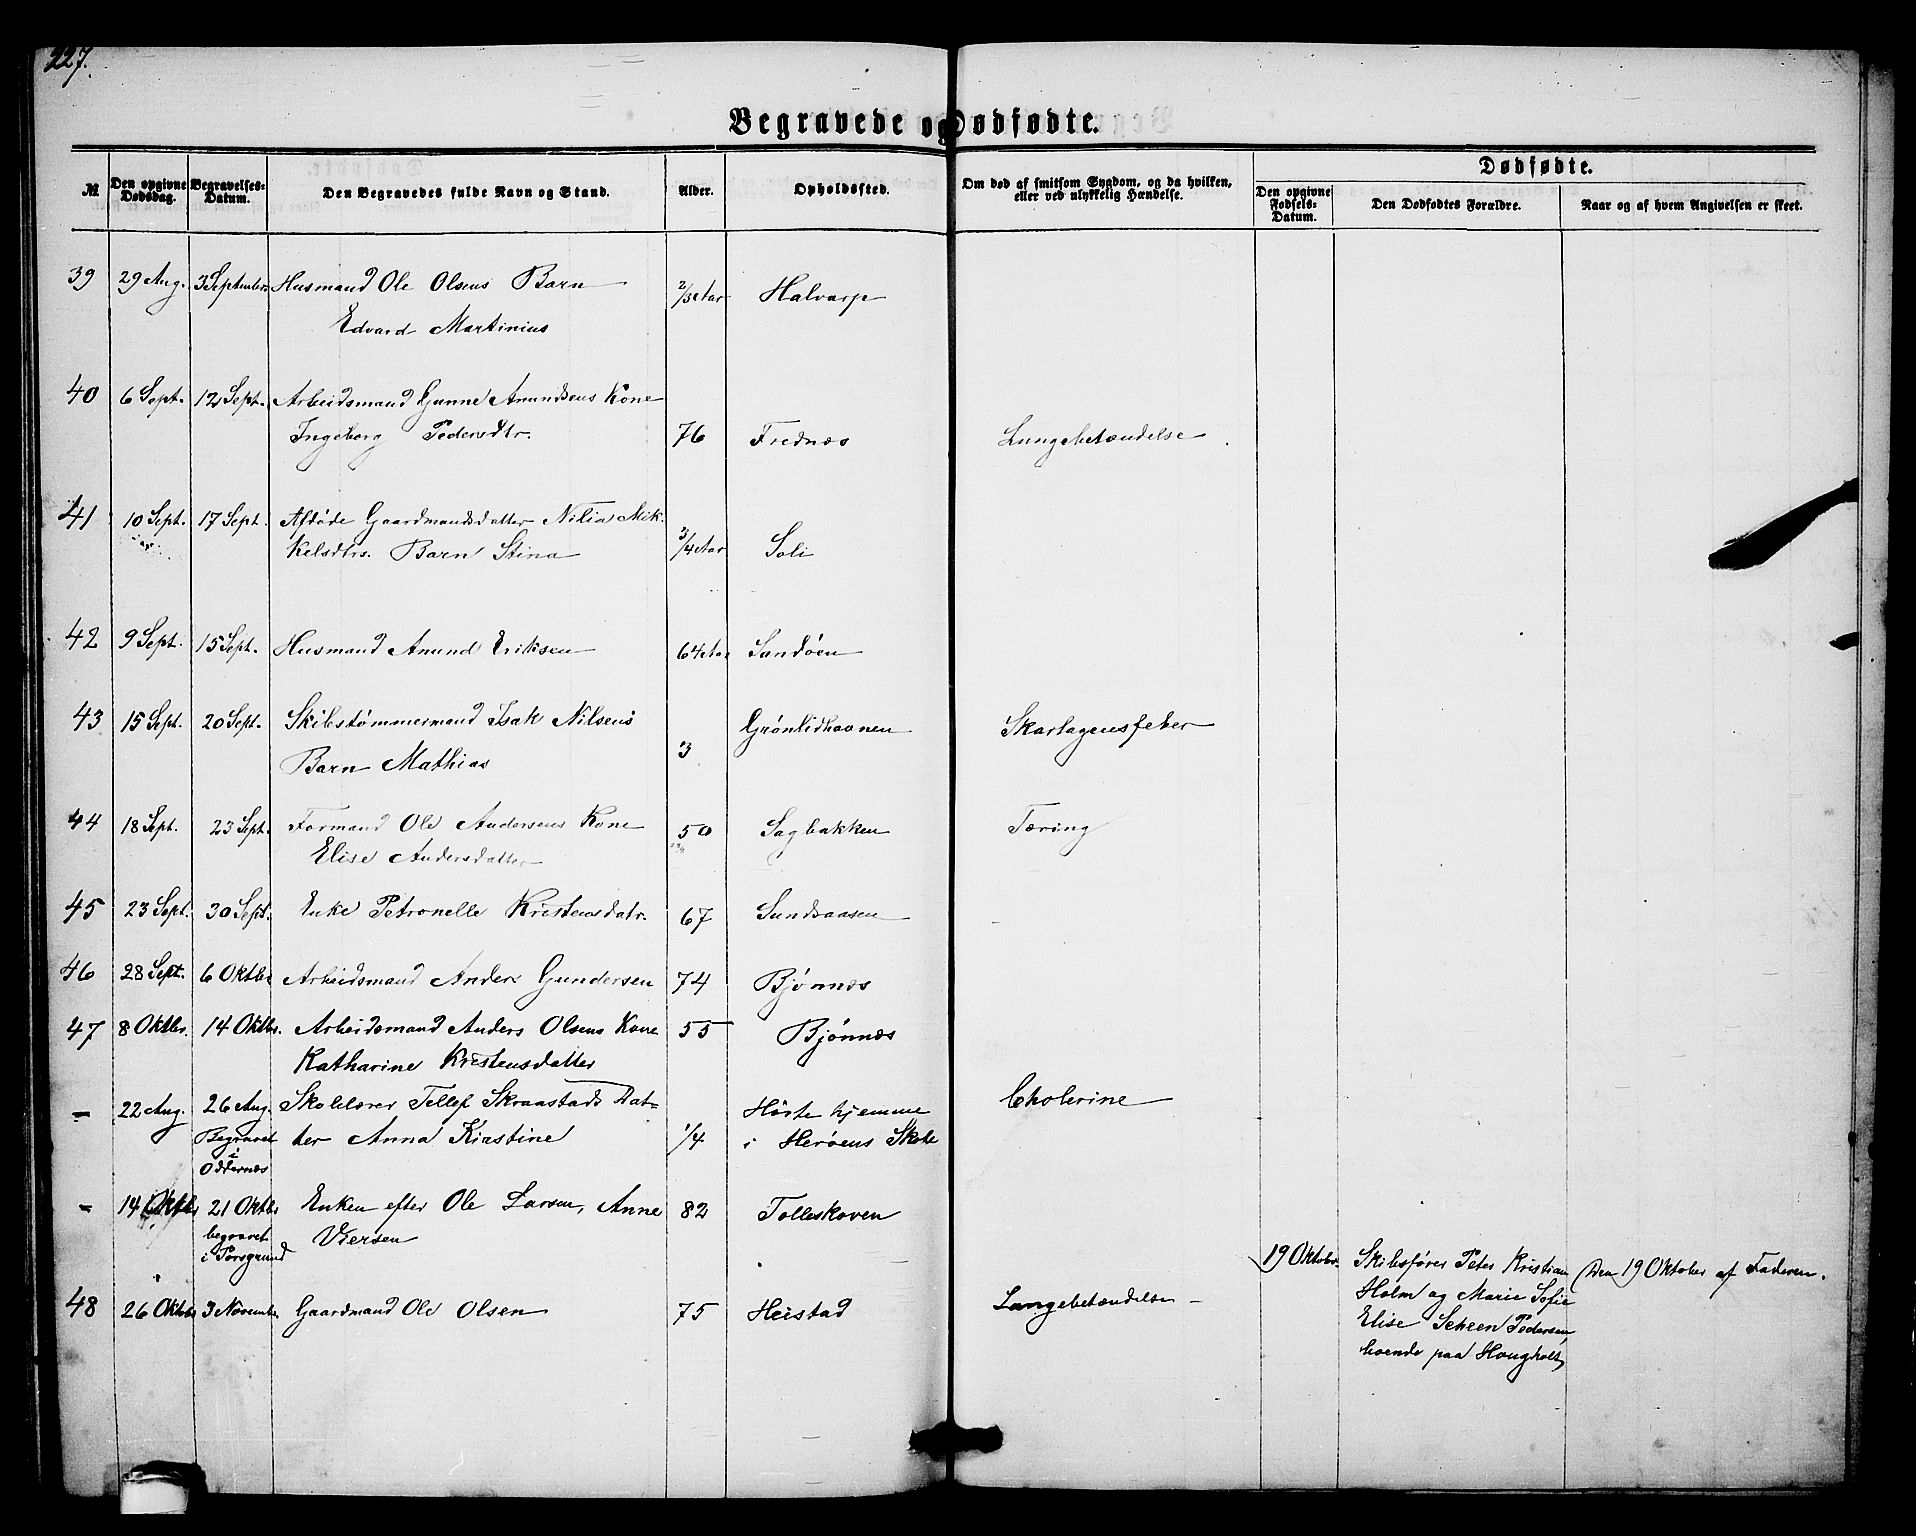 227.
Begravede og Dødfødte.
№
Den opgivne Dødsdag.
Begravelses-Datum.
Den Begravedes fulde Navn og Stand.
Alder.
Opholdssted.
Om død af smitsom Sygdom, og da hvilken, eller ved ulykkelig Hændelse.
Dødfødte.
Den opgivne Fødsels-Datum.
Den Dødfødtes Forældre.
Naar og af hvem Angivelsen er skeet.
39 29 Aug. 3 Septembr. Husmand Ole Olsens Barn 2/3 Aar Halvarp
Edvard Martinius
40 6 Sept. 12 Sept. Arbeidsmand Gunne Amundsens Kone
Ingeborg Pedersdtr. 76 Frednæs Lungebetændelse
41 10 Sept. 17 Sept. Afdøde Gaardmandsdatter Nilia Mik-
kelsdtrs. Barn Stina 3/4 Aar Soli
42 9 Sept. 15 Sept. Husmand Anund Eriksen 64 Aar Sandøen
43 15 Sept. 20 Sept. Skibstømmermand Isak Nilsens Grønlidhavnen Skarlagensfeber
Barn Mathias 3
44 18 Sept. 23 Sept. Formand Ole Andersens Kone 50 Sagbakken Tæring
Elise Andersdatter
45 23 Sept. 30 Sept. Enke Petronelle Kristensdatr. 67 Sundsaasen
46 28 Sept. 6 Oktbr Arbeidsmand Anders Gundersen 74 Bjønnæs
47 8 Oktbr. 14 Oktbr. Arbeidsmand Anders Olsens Kone 55 Bjønnæs
Katharine Kristensdatter
- 22 Aug. 26 Aug. Skolelærer Tellef Skraastads Dat- Hørte hjemme Cholerine
Begravet ter Anna Kirstine 1/4 i Herøens Skole
i
Oddernæs
- 14 Oktbr 21 Oktbr Enken efter Ole Larsen, Anne 82 Tolleskoven
begravet Viersen
i Porsgrund
19 Oktobr. Skibsfører Peter Kristian Den 19 Oktober af Faderen.
Holm og Marie Sofie
Elise Scheen Pedersen
boende paa Hougholt
48 26 Oktbr 3 Novembr. Gaardmand Ole Olsen 75 Heistad Lungebetændelse